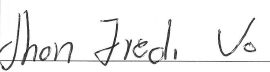 Jhon Fredi Vo